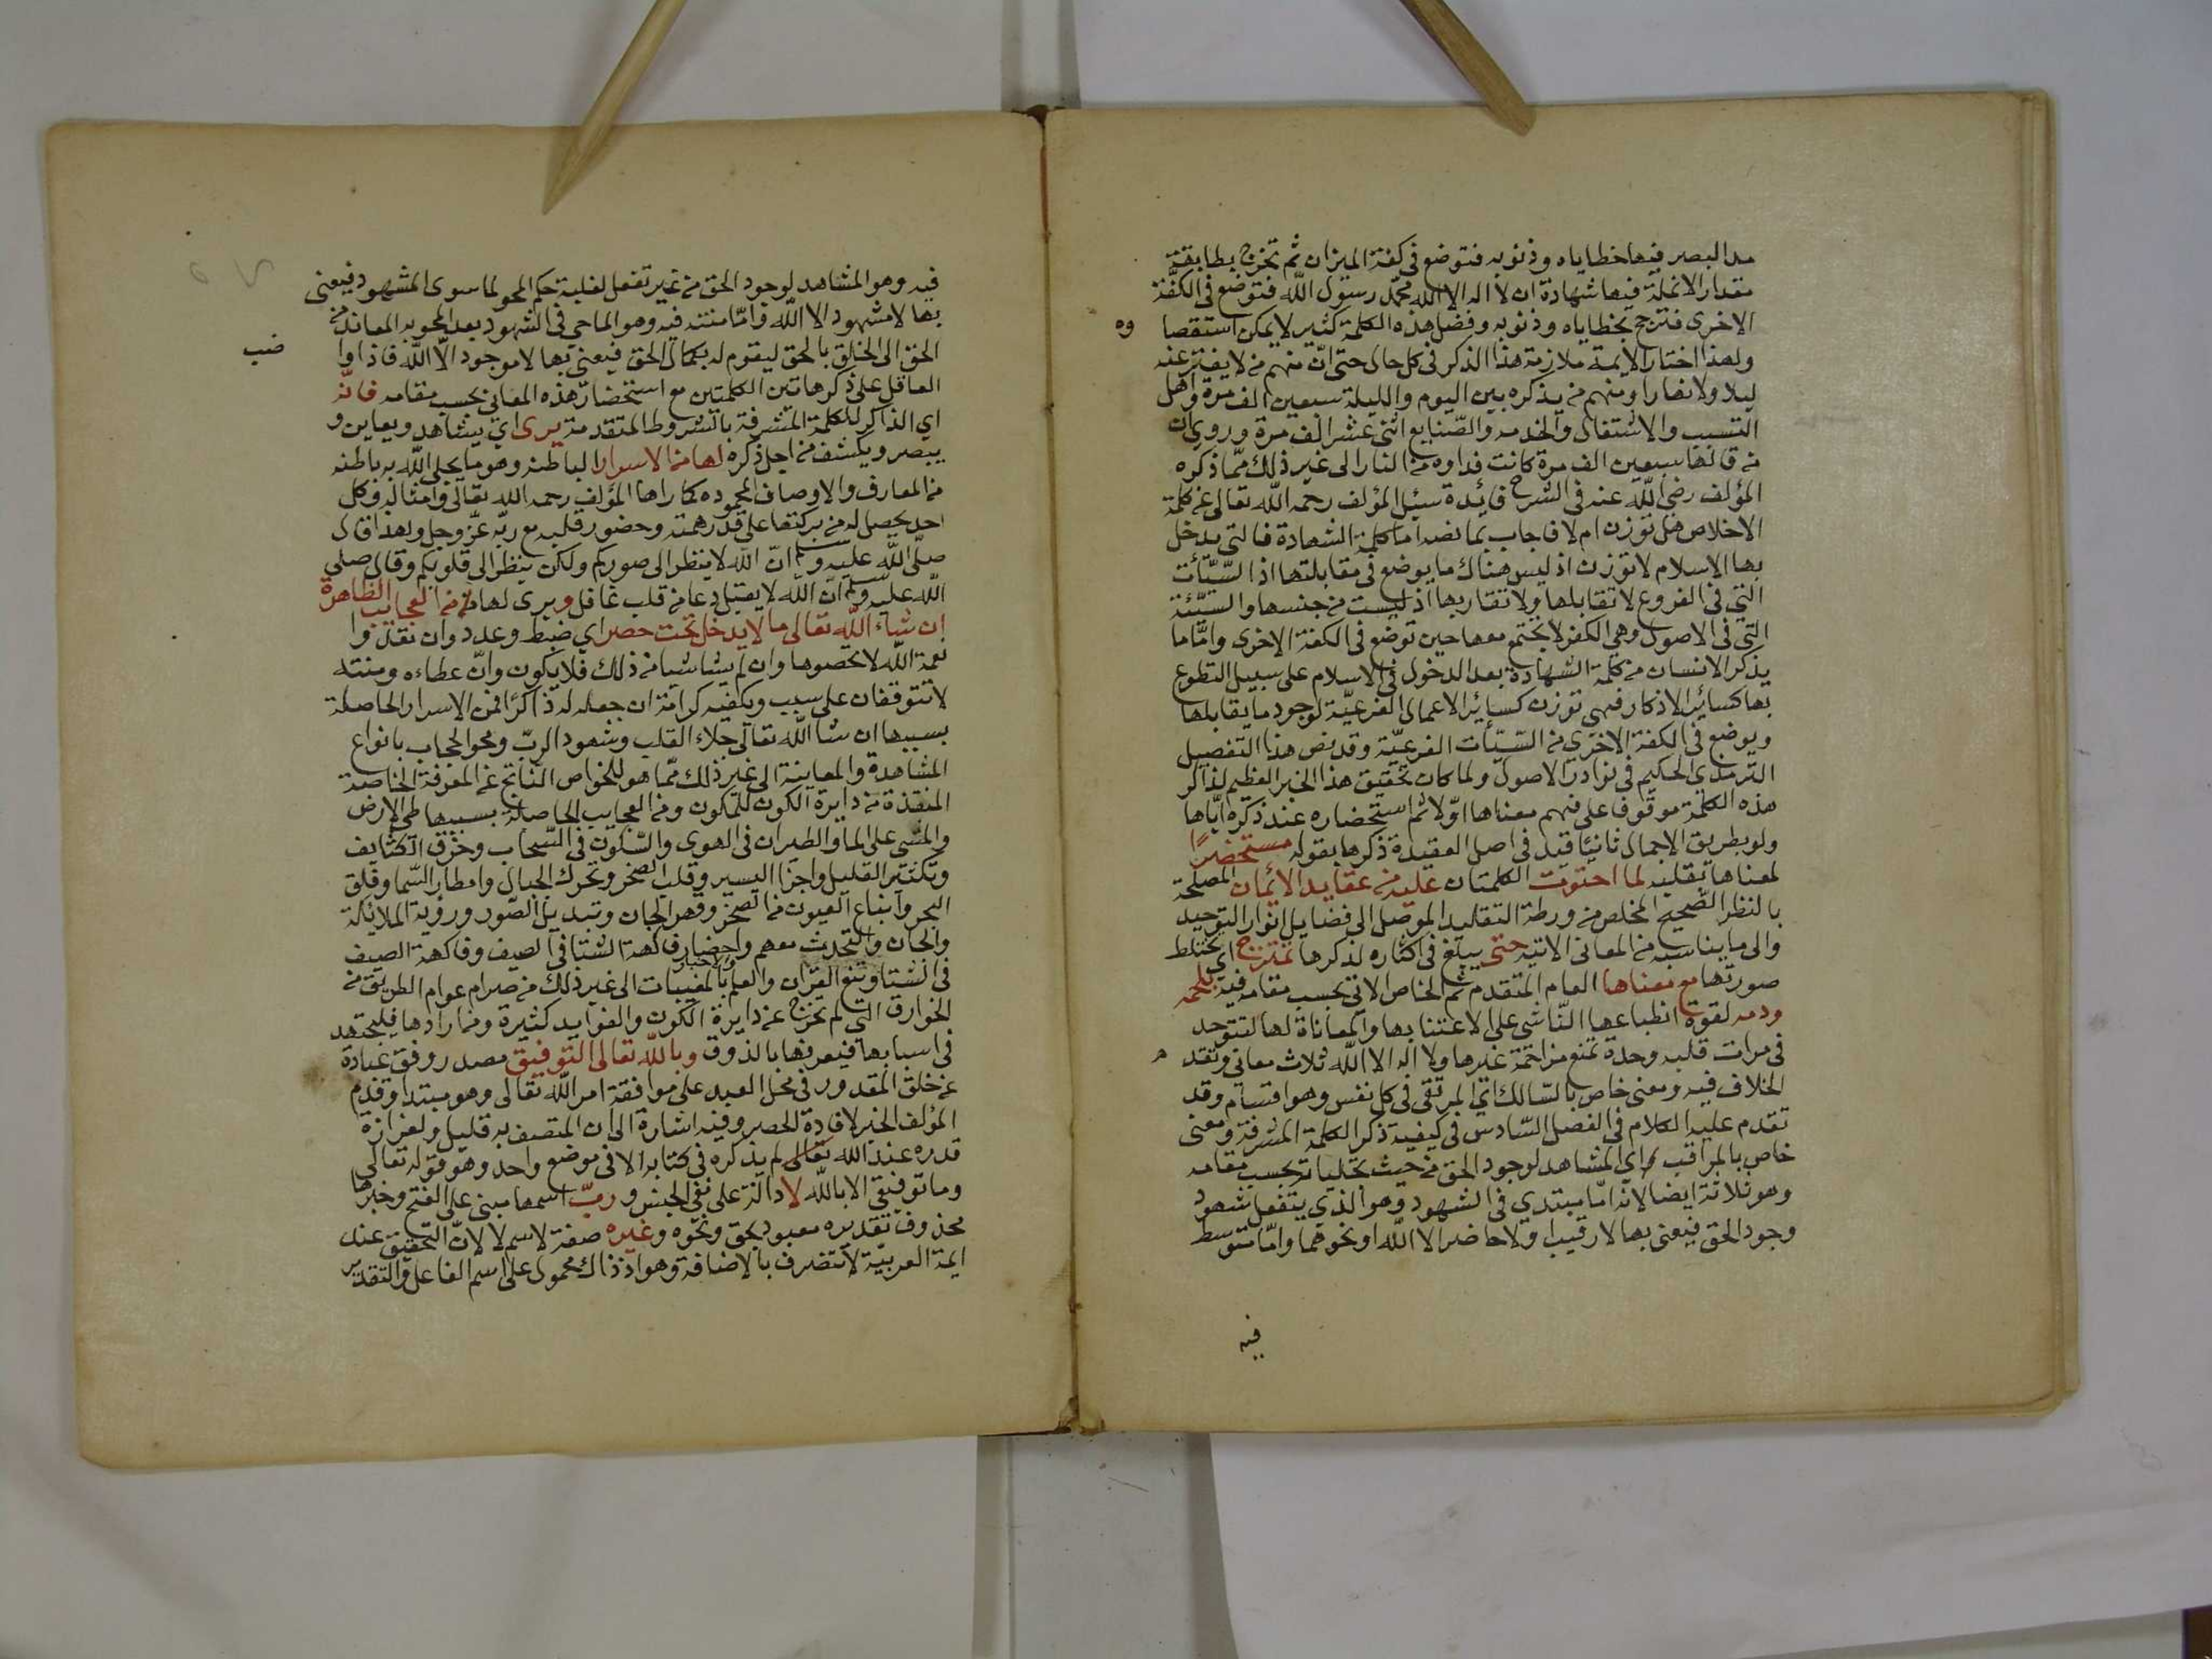 مد البصر فيها خطاياه وذنوبه فتوضع في كفة الميزان ثم تخرج بطاقة
مقدار الانملة فيها شهادة ان لا اله الا الله محمد رسول الله فتوضع في الكفة
الاخرى فترجح بخطاياه وذنوبه وفضل هذه الكلمة كثير لا يمكن استقصا وه
ولهذا اختار الايمة ملازمة هذا الذكر في كل حال حتى ان منهم من لا يفتر عنه
ليلا ولا نهارا ومنهم من يذكره بين اليوم والليلة سبعين الف مرة واهل
التسبب والاشتغال والخدمه والصنايع اثنى عشر الف مرة وروي ان
من قالها سبعين الف مرة كانت فداوه من النار الى غير ذلك مما ذكره
المؤلف رضي الله عنه في الشرح فائدة سئل المؤلف رحمه الله تعالى عن كلمة
الاخلاص هل توزن ام لا فاجاب بما نصه اما كلمة الشهادة فالتي يدخل
بها الاسلام لا توزن اذ ليس هناك ما يوضع في مقابلتها اذ السيئات
التي في الفروع لا تقابلها ولا تقاربها اذ ليست من جنسها والسيئة
التي في الاصول وهي الكفر لا يجتمع معها حين توضع في الكفة الاخرى واما ما
يذكر الانسان من كلمة الشهادة بعد الدخول في الاسلام على سبيل التطوع
بها كسائر الاذكار فهي توزن كسائر الاعمال الفرعية لوجود ما يقابلها
ويوضع في الكفة الاخرى من السيئات الفرعية وقد نص هذا التفصيل
الترمذي الحكيم في نوادر الاصول ولما كان تحقيق هذا الخير العظيم لذاكر
هذه الكلمة موقوفا على فهم معناها اولا ثم استحضاره عند ذكره اياها
ولو بطريق الاجمال ثانيا قيد في اصل العقيدة ذكرها بقوله مستحضرا
لمعناها بقلبه لما احتوت الكلمتان عليه من عقايد الايمان المصلحة
بالنظر الصحيح المخلص من ورطة التقليد الموصل الى فضايل انوار التوحيد
والى ما يناسبه من المعاني الاتية حتى يبلغ في اكثاره لذكرها تمتزج اي يختلط
صورتها مع معناها العام المتقدم ثم الخاص الاتي بحسب مقامه فيه بلحمه
ودمه لقوة انطباعها الناشي على الاعتنا بها والمعاناة لها لتتوحد
في مرات قلبه وحدة تمنع مزاحمة غيرها ولا اله الا الله ثلاث معاني وتقدم
الخلاف فيه ومعنى خاص بالسالك اي المرتقى في كل نفس وهو اقسام وقد
تقدم عليه الكلام في الفصل السادس في كيفية ذكر الكلمة المشرفة ومعنى
خاص بالمراقب اي المشاهد لوجود الحق من حيث تجلياته بحسب مقامه
وهو ثلاثة ايضا لانه اما مبتدى في الشهود وهو الذي يتفعل شهود
وجود الحق فيعنى بها لا رقيب او لا حاضر الا الله او نحوهما واما متوسط
فيه
فيه وهو المشاهد لوجود الحق من غير تفعل لغلبة حكم المحو لما سوى المشهود فيعنى
بها لا مشهود الا الله واما منتد فيه وهو الماحي في الشهود بعد المحو به المعاند من
الحق الى الخلق بالحق ليقوم له بكمال الحق فيعنى بها لا موجود الا الله فاذا وا ضب
العاقل على ذكر هاتين الكلمتين مع استحضار هذه المعاني بحسب مقامه فانه
اي الذاكر للكلمة المشرفة بالشروط المتقدمة يرى اي يشاهد ويعاين و
يبصر ويكشف من اجل ذكره لها من الاسرار الباطنه وهو ما يحلى الله به باطنه
من المعارف والاوصاف المحموده كما راها المؤلف رحمه الله تعالى وامثاله وكل
احد يحصل له من بركتها على قدر همته وحضور قلبه مع ربه عز وجل ولهذا قال
صلى الله عليه وسلم ان الله لا ينظر الى صوركم ولكن ينظر الى قلوبكم وقال صلى
الله عليه وسلم ان الله لا يقبل دعا من قلب غافل ويرى لها من العجايب الظاهرة
ان شاء الله تعالى ما لا يدخل تحت حصر اي ضبط وعدد وان تعدوا
نعمة الله لا تحصوها وان لم يشا شيا من ذلك فلا يكون وان عطاءه ومنته
لا تتوقفان على سبب ويكفيه كرامة ان جعله له ذاكرا فمن الاسرار الحاصلة
بسببها ان شا الله تعالى جلاء القلب وشهود الرب ومحو الحجاب بانواع
المشاهدة والمعاينة الى غير ذلك مما هو للخواص الناتج عن المعرفة الخاصة
المنقذة من دايرة الكون للمكون ومن العجايب الحاصلة بسببها طي الارض
والمشي على الما والطيران في الهوى والسكون في السحاب وخرق الكثايف
وتكثير القليل واجزا اليسير وقلب الصخر وتحرك الجبال وامطار السما وفلق
البحر وانباع العيون من الصخر وقهر الجان وتبديل الصور ورؤية الملائكة
والجان والتحدث معهم واحضار فاكهة الشتا في الصيف وفاكهة الصيف
في الشتا وتنوع القران والعلم والاخبار بالمغيبات الى غير ذلك من صرام عوام الطريق من
الخوارق التي لم تخرج عن دايرة الكون والفوايد كثيرة ومن ارادها فليجتهد
في اسبابها فيعرفها بالذوق وبالله تعالى التوفيق مصدر روفق عبادة
عن خلق المقدور في محل العبد على موافقة امر الله تعالى وهو مبتدا وقدم
المؤلف الخبر لافادة الحصر وفيه اشارة الى ان المتصف به قليل ولغزازة
قدره عند الله تعالى لم يذكره في كتابه الا في موضع واحد وهو قوله تعالى
وما توفيقي الا بالله لا دالة على نفي الجنس و رب اسمها مبنى على الفتح وخبرها
محذوف تقديره معبود بحق ونحوه وغيره صفة لاسم لا لان التحقيق عند
ايمة العربية لا تتضرف بالاضافة وهو اذ ذاك محمول على اسم الفاعل والتقدير